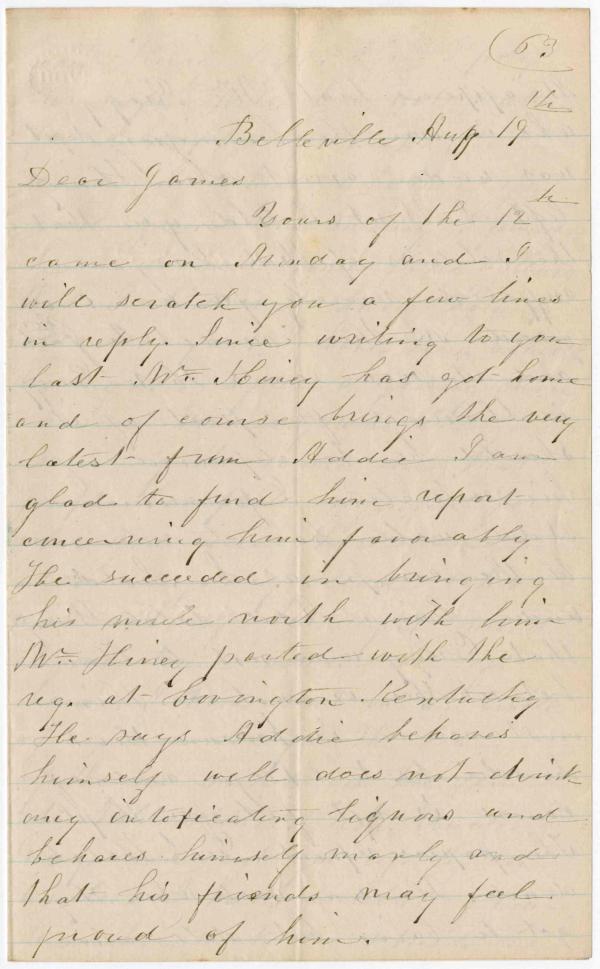 63
Belleville Aug 19th
Dear James
Yours of the 12th
came on Monday and I
will scratch you a few lines
in reply. Since writing to you
last Mr. Hiney has got home
and of course brings the very
latest from Addie I am
glad to find him report
concerning him favorably
He succeeded in bringing
his mule north with him
Mr. Hiney parted with the
reg. at Covington Kentucky
He says Addie behaves
himself well does not drink
any intoxicating liquors and
behaves himself manly and
that his friends may feel
proud of him.